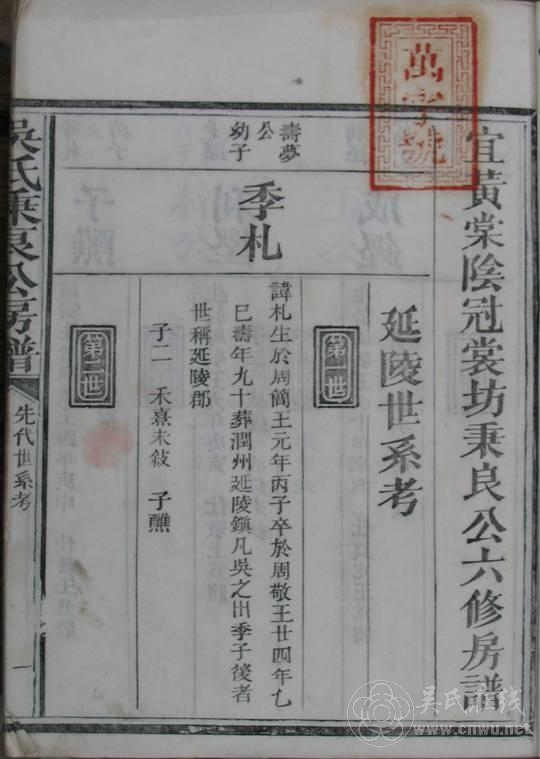 萬字號
宜黃棠陰冠裳坊秉良公六修房譜
延陵世系考
第一世
壽夢
公
幼子
季札
諱札生於周簡王元年丙子卒於周敬王廿四年乙
巳壽年九十葬潤州延陵鎮凡吳之出季子後者
世稱延陵郡
子二 禾熹未敍 子醮
第二世
吳氏秉良公房譜
先代世系考
一
吴氏在线
www.cnwu.net